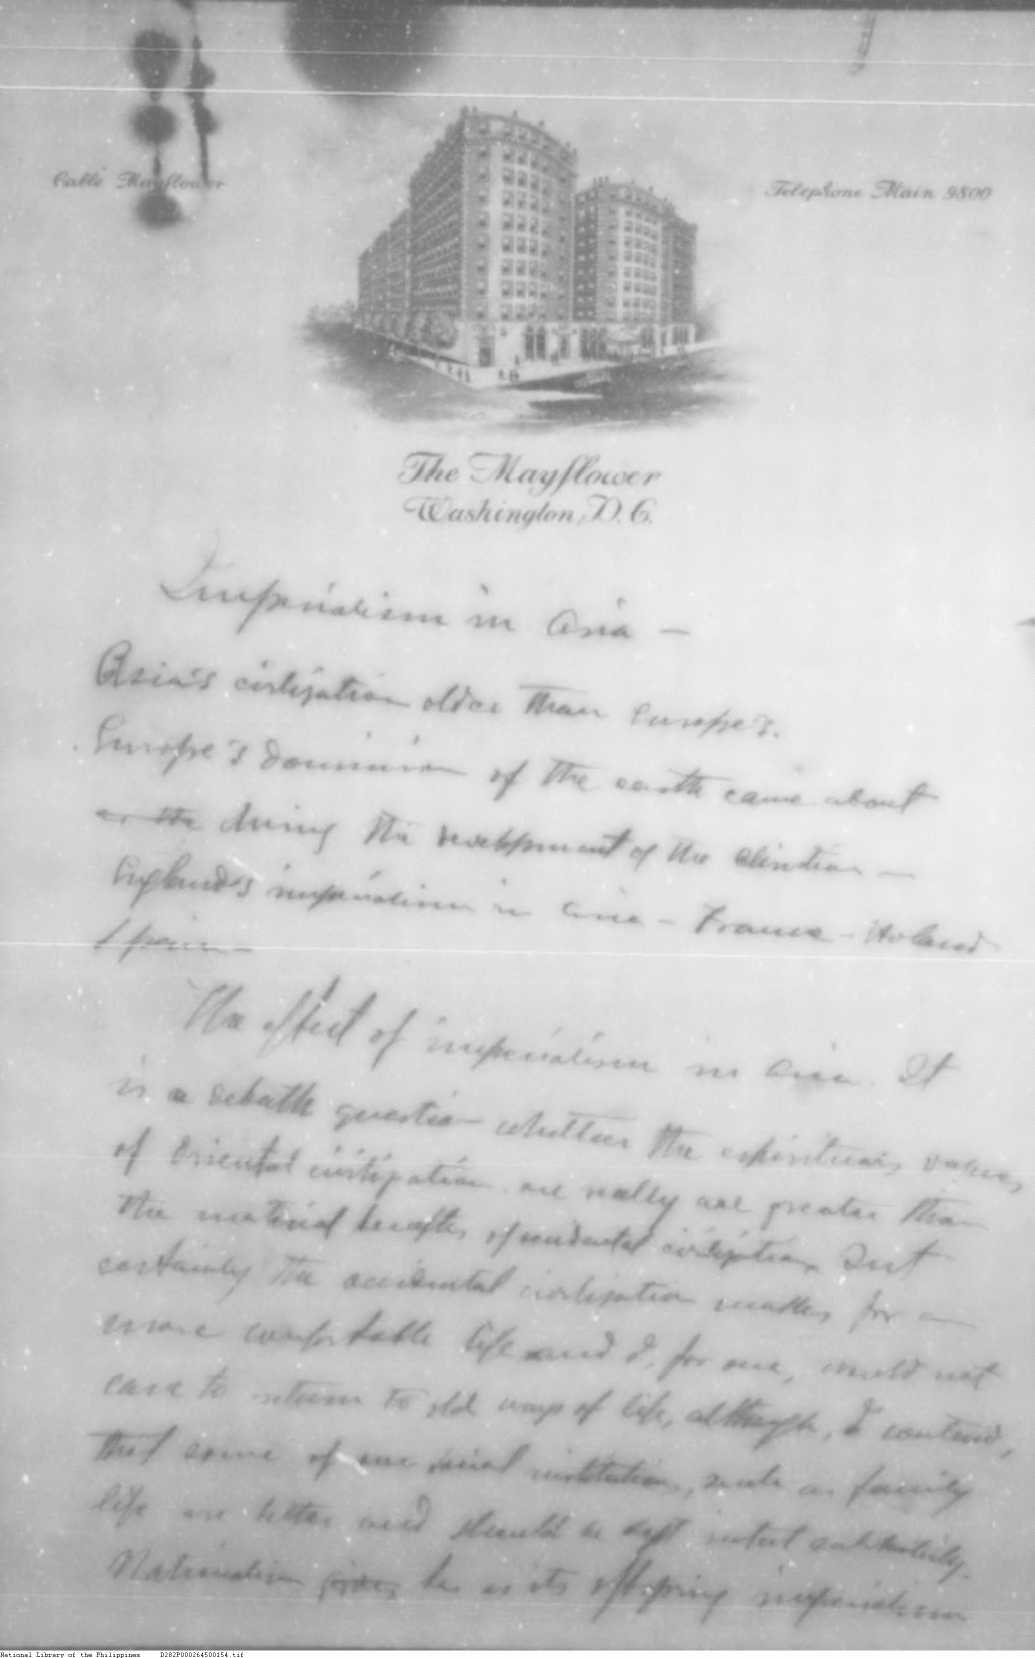 Cable Mayflower
Telephone Main 9800
The Mayflower
Washington, D.C.
Imperialism in Asia —
Asia's civilization older than Europe's.
Europe's dominion of the earth came about
or the during the development of the
England's imperialism in Asia - France - Holand
Spain -
The effect of imperialism in Asia. It
is a debatle question whether the espiritual values
of Oriental civilization are really are greater than
the material benefits of occidental civilization, but
certainly the occidental civilization makes for a
more comfortable life and I, for one, would not
care to return to old ways of life, although, I contend,
that some of our social institutions, such as family
life are better and should be kept intact
Nationalism gives has as its offspring imperialism
National Library of the Philippines D282P000264500154.tif